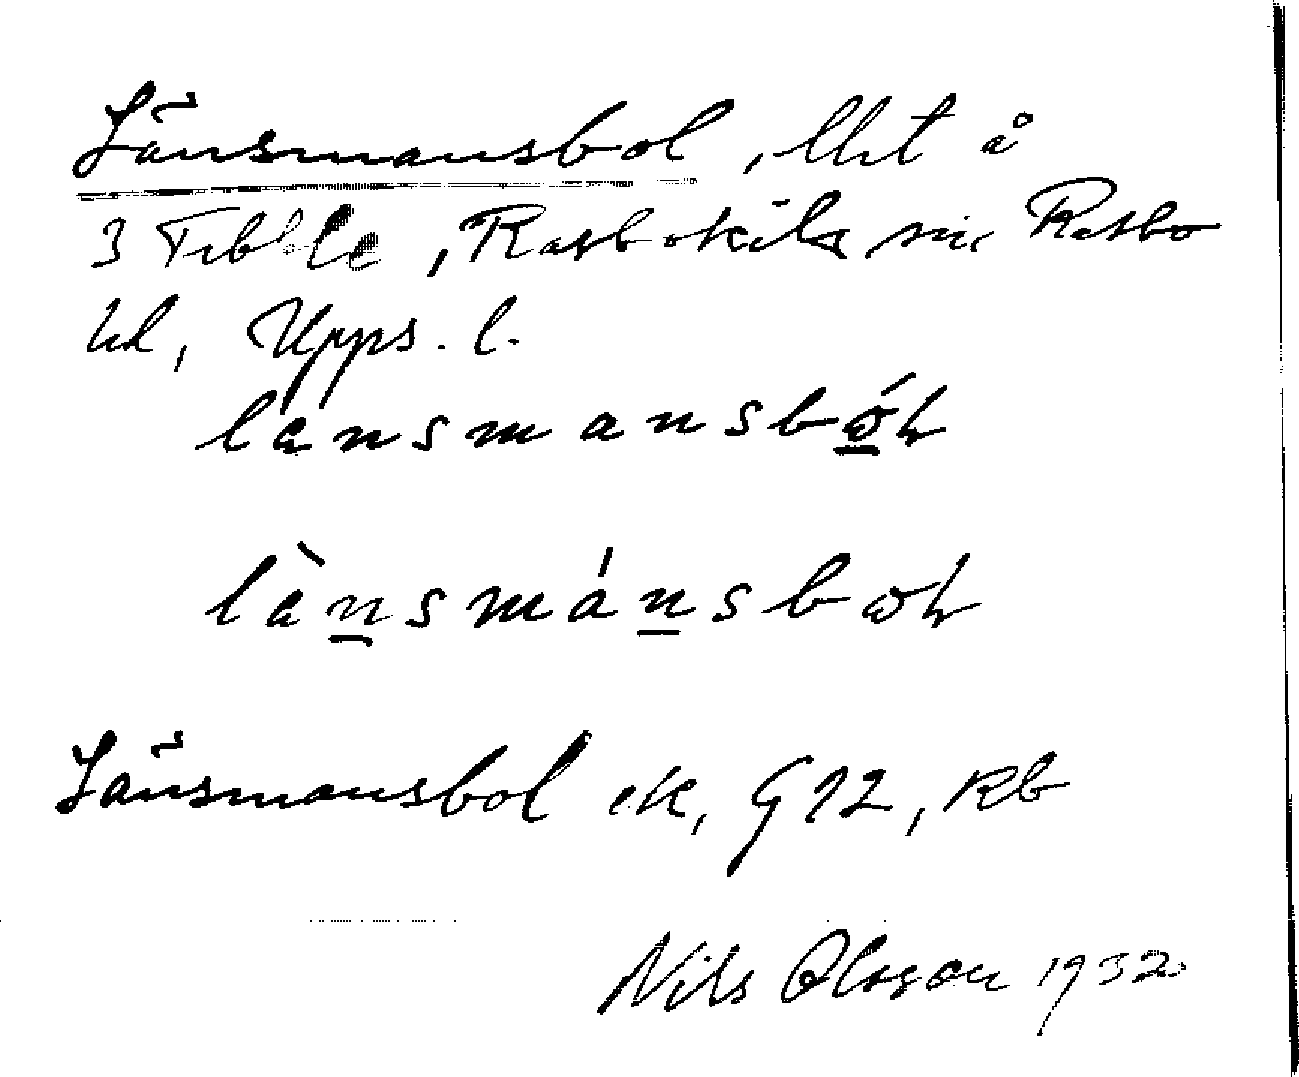 Länsmansbol, lht å
3 Tibble, Rasbokils sn, Rasbo
hd, Upps. l.
lansmansbo̲l
làn̲smán̲sbol
Länsmansbol ek, G 12, Rb
Nils Olsson 1932